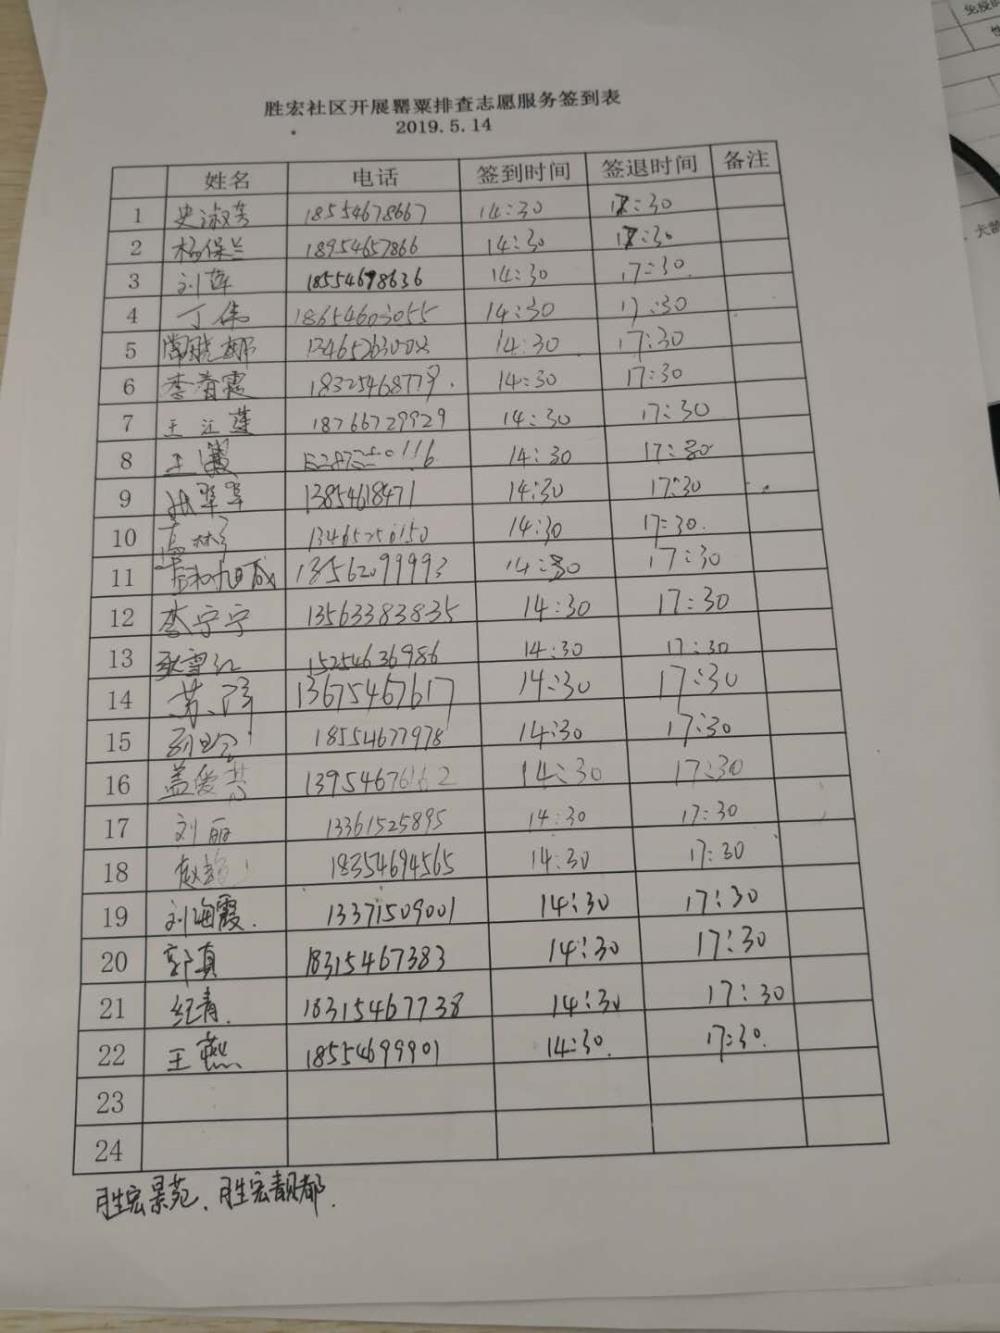 胜宏社区开展罂粟排查志愿服务签到表
2019.5.14
姓名 电话 签到时间 签退时间 备注
1 史淑芳 18554678667 14:30 17:30
2 杨保兰 18954657866 14:30 17:30
3 刘萍 18554698636 14:30 17:30
4 丁伟 18654603055 14:30 17:30
5 14:30 17:30
6 李春霞 18325468779 14:30 17:30
7 王江莲 18766729929 14:30 17:30
8 王 14:30 17:30
9 13854618471 14:30 17:30
10 14:30 17:30
11 13562099993 14:30 17:30
12 李宁宁 13563383835 14:30 17:30
13 耿雪红 15254636986 14:30 17:30
14 苏 13675467617 14:30 17:30
15 18554677978 14:30 17:30
16 盖爱芬 13954676162 14:30 17:30
17 刘丽 13361525895 14:30 17:30
18 赵 18354694565 14:30 17:30
19 刘海霞 13371509001 14:30 17:30
20 郭真 18315467383 14:30 17:30
21 纪青 18315467738 14:30 17:30
22 王燕 18554699901 14:30 17:30
23
24
胜宏景苑、胜宏靓都